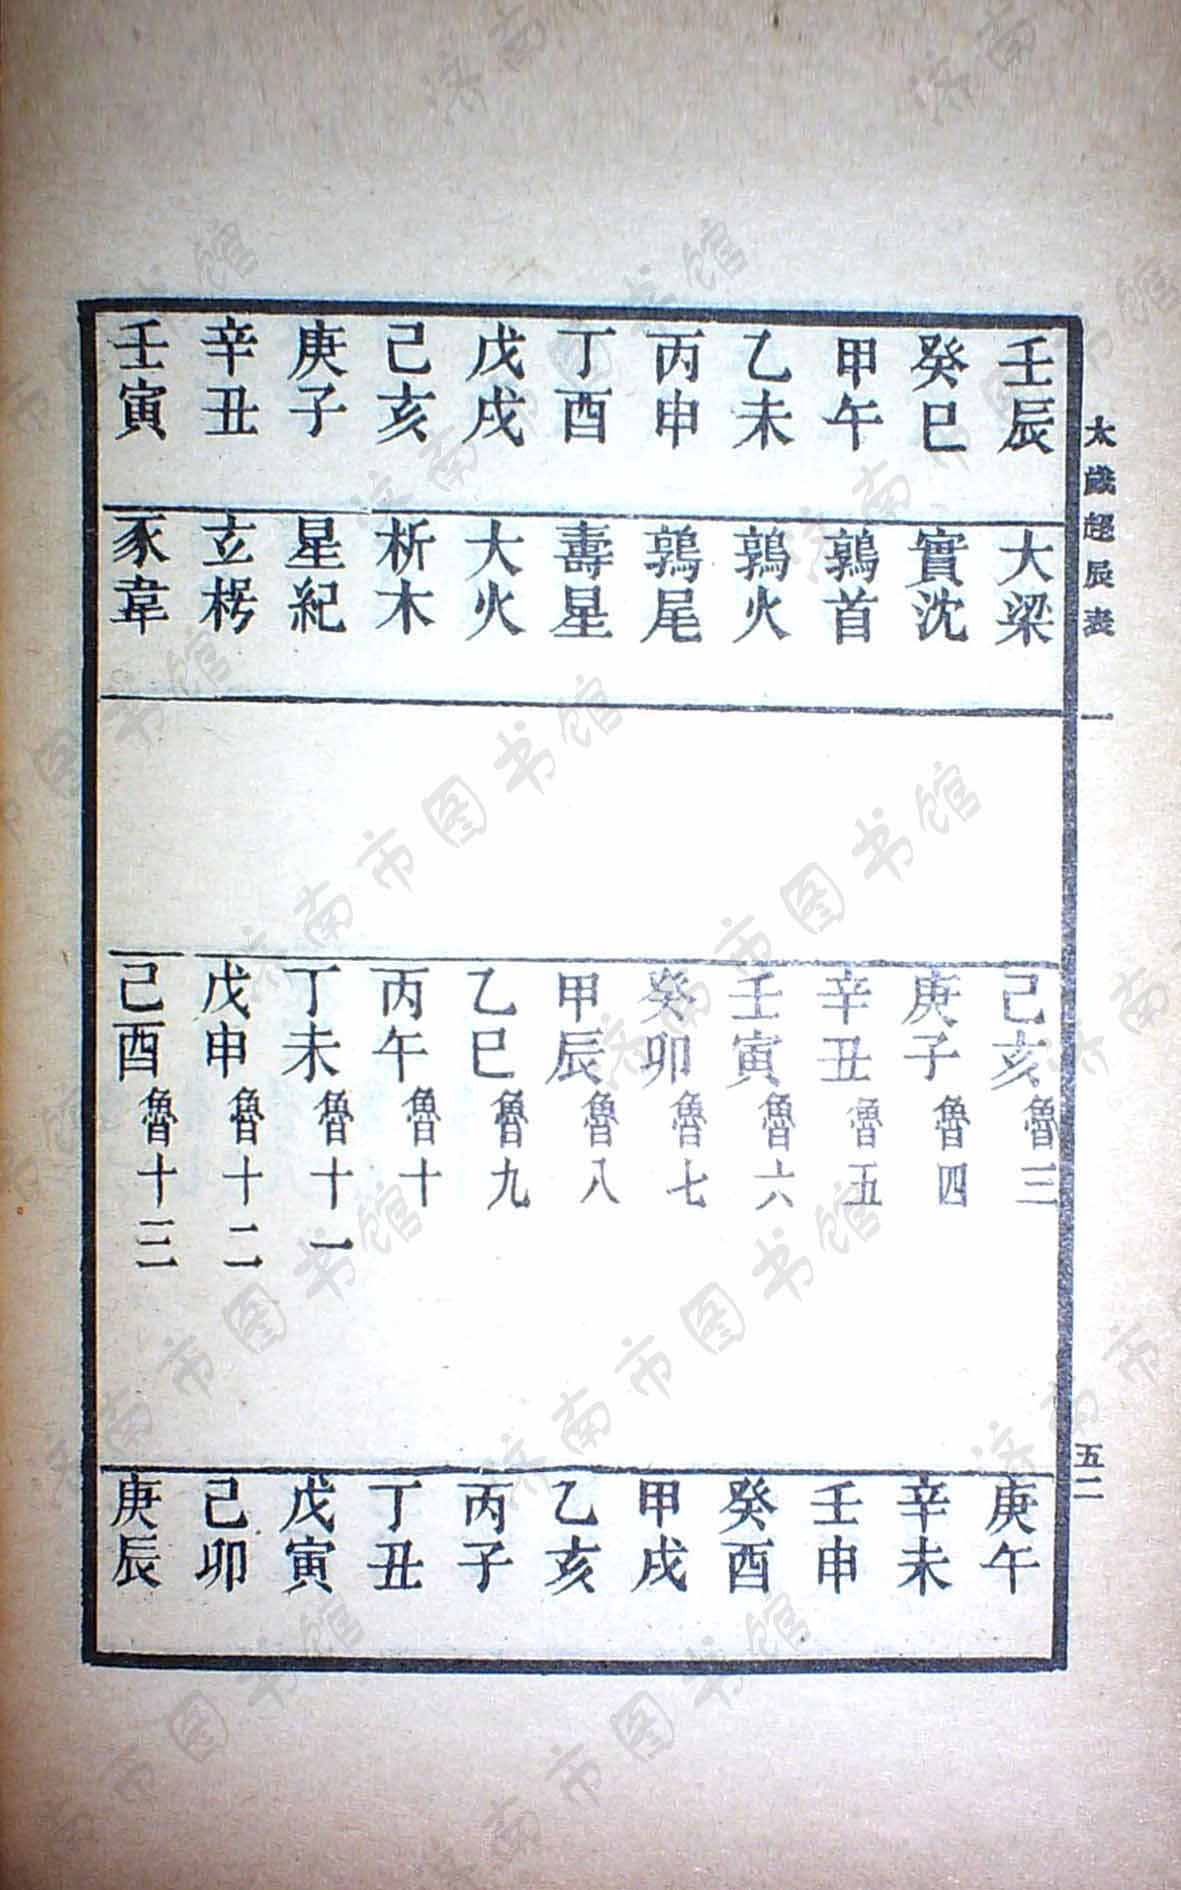 太歲超辰表 一 五二
壬辰 大梁 己亥魯三 庚午
癸巳 實沈 庚子魯四 辛未
甲午 鶉首 辛丑魯五 壬申
乙未 鶉火 壬寅魯六 癸酉
丙申 鶉尾 癸卯魯七 甲戌
丁酉 壽星 甲辰魯八 乙亥
戊戌 大火 乙巳魯九 丙子
己亥 析木 丙午魯十 丁丑
庚子 星紀 丁未魯十一 戊寅
辛丑 玄枵 戊申魯十二 己卯
壬寅 豕韋 己酉魯十三 庚辰
济南市图书馆